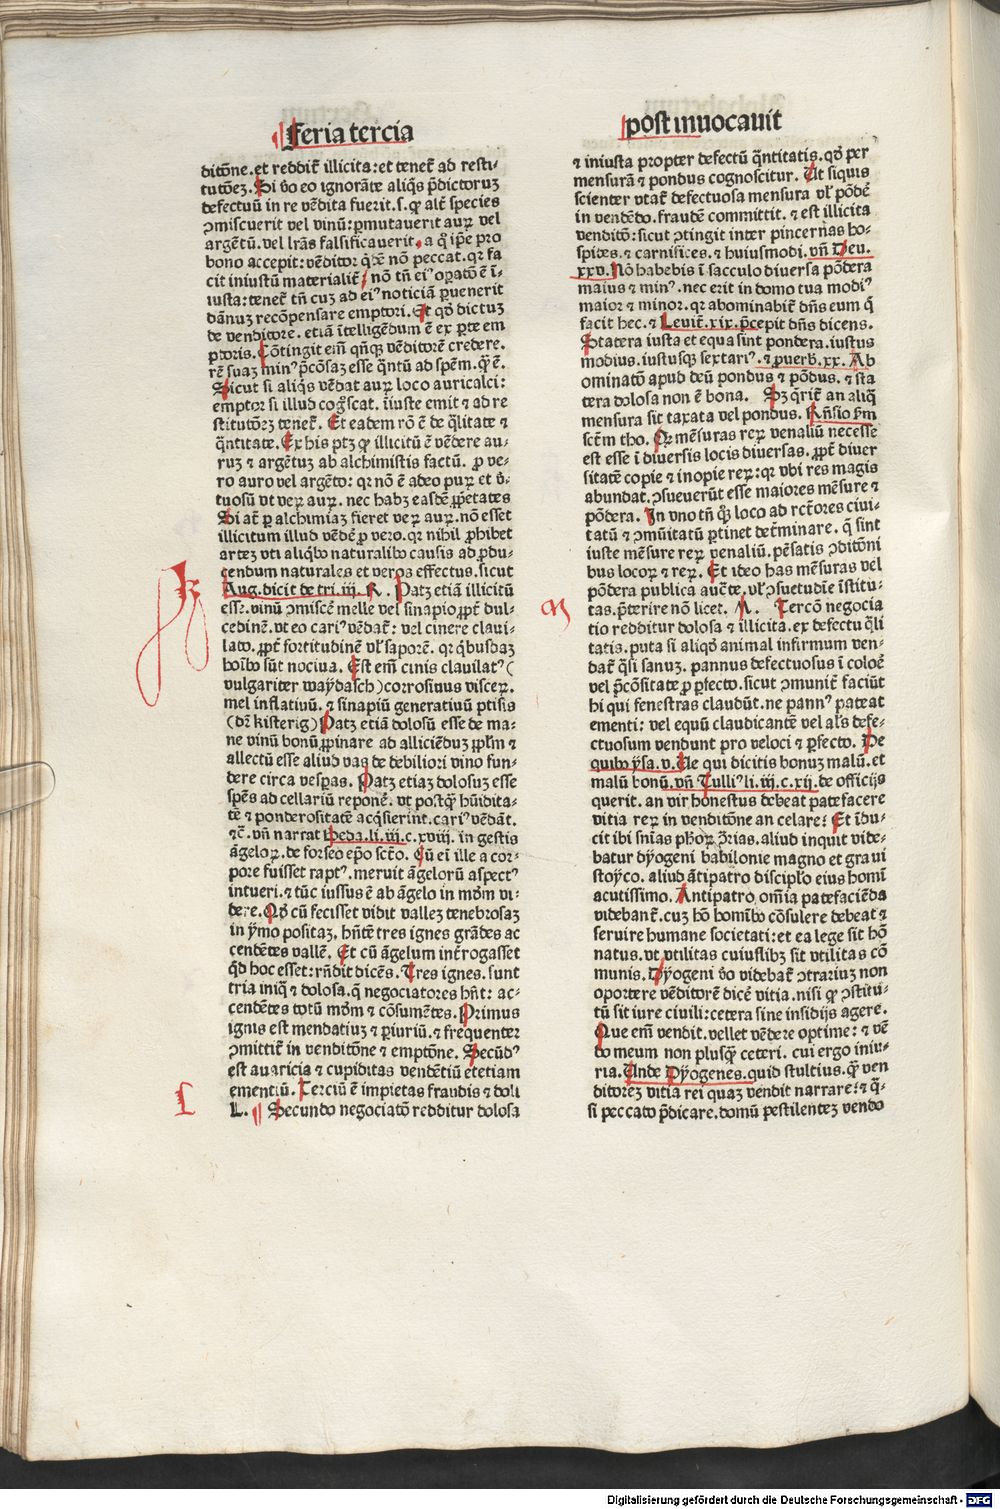 Feria tercia
ditõne. et reddit̃ illicita: et tenet̃ ad resti-
tutõez. Si ṽo eo ignorãte aliq̃s p̃dictoruz
defectuũ in re vẽdita fuerit. s. ꝙ alt̃ species
ꝯmiscuerit vel vinũ: ꝑmutauerit auꝝ vel
argẽtũ. vel lr̃as falsificauerit, a q̃ ip̃e pro
bono accepit: vẽditor q̃dẽ nõ peccat. qꝛ fa
cit iniustũ materialit̃, nõ tñ eiꝰ oꝑatõ ẽ ĩ-
iusta: tenet̃ tñ cuz ad eiꝰ noticiã ꝑuenerit
dãnuz recõpensare emptori. Et qd̕ dictuz
de venditore. etiã ĩtelligẽdum ẽ ex ꝑte em
ptoris. Cõtingit em̃ qñqꝫ vẽditorẽ credere.
rẽ suaz minꝰ p̃cõsaz esse q̃ntũ ad spẽm. q̃ ẽ.
Sicut si aliq̃s vẽdat auꝝ loco auricalci:
emptor si illud cog̃scat. ĩiuste emit ⁊ ad re
stitutõez tenet̃. Et eadem rõ ẽ de q̃litate ⁊
q̃ntitate. Ex his ptꝫ ꝙ illicitũ ẽ vẽdere au-
ruz ⁊ argẽtuz ab alchimistis factũ. ꝓ ve-
ro auro vel argẽto: qꝛ nõ ẽ adeo puꝝ et ṽ-
tuosũ vt veꝝ auꝝ. nec habꝫ easdẽ ꝓp̃etates
Si at̃ ꝑ alchimiaz fieret veꝝ auꝝ. nõ esset
illicitum illud vẽdẽ ꝓ vero. qꝛ nihil ꝓhibet
artez vti aliq̃bꝰ naturalibꝰ causis ad ꝓdu-
cendum naturales et veros effectus. sicut
Aug. dicit de tri. iii. K. Patꝫ etiã illicitũ
esse. vinũ ꝯmiscẽ melle vel sinapio ꝓpt̃ dul-
cedinẽ. vt eo cariꝰ vẽdat̃: vel cinere claui-
lato. ꝓpt̃ fortitudinẽ vl̕ saporẽ. qꝛ q̃busdaz
hoĩbꝰ sũt nociua. Est em̃ cinis clauilatꝰ (
vulgariter waydasch) corrosiuus visceꝝ.
mel inflatiuũ. ⁊ sinapiũ generatiuũ ptisis
(dr̃ kisterig) Patꝫ etiã dolosũ esse de ma-
ne vinũ bonũ ꝓpinare ad alliciẽduz ꝓpl̃m ⁊
allectũ esse aliud vas de debiliori vino fun-
dere circa vesꝑas. Patꝫ etiaz dolosuz esse
spẽs ad cellariũ reponẽ. vt postq̃ꝫ hũidita-
tẽ ⁊ ponderositatẽ acq̃sierint. cariꝰ vẽdãt.
⁊c̃. vñ narrat Beda. li. iii. c. xviii. in gestis
ãgeloꝝ. de forseo ep̃o sct̃o. Cũ em̃ ille a cor-
pore fuisset raptꝰ. meruit ãgelorũ aspectꝰ
intueri. ⁊ tũc iussus ẽ ab ãgelo in mdm vi-
dere. Qd̕ cũ fecisset vidit vallez tenebrosaz
in ymo positaz, hñtẽ tres ignes grãdes ac
cendẽtes vallẽ. Et cũ ãgelum int̃rogasset
qd hoc esset: rñdit dicẽs. Tres ignes. sunt
tria iniq̃ ⁊ dolosa. q̃ negociatores hñt: ac-
cendẽtes totũ mdm ⁊ cõsumẽtes. Primus
ignis est mendatiuz ⁊ ꝑiuriũ. ⁊ frequenter
ꝯmittit̃ in venditõne ⁊ emptõne. Secũdꝰ
est auaricia ⁊ cupiditas vendẽtiũ et etiam
ementiũ. Terciũ ẽ impietas fraudis ⁊ doli
L. Secundo negociatõ redditur dolosa
post inuocauit
⁊ iniusta propter defectũ q̃ntitatis. qd̕ per
mensurã ⁊ pondus cognoscitur. Ut siquis
scienter vtat̃ defectuosa mensura vl̕ põdẽ
in vendẽdo. fraudẽ committit. ⁊ est illicita
venditõ: sicut ꝯtingit inter pincernas ho-
spites. ⁊ carnifices. ⁊ huiusmodi. vñ Deu.
xxv. Nõ habebis ĩ sacculo diuersa põdera
maius ⁊ minꝰ. nec erit in domo tua modiꝰ
maior ⁊ minor. qꝛ abominabit̃ dñs eum q̃
facit hec. ⁊ Leuit̃. xix. p̃cepit dñs dicens.
Statera iusta et equa sint pondera. iustus
modius. iustusqꝫ sextariꝰ. ⁊ ꝓuerb̃. xx. Ab
ominatõ apud deũ pondus ⁊ põdus. ⁊ sta
tera dolosa non ẽ bona. Sꝫ q̃rit̃ an aliq̃
mensura sit taxata vel pondus. Rñsio ẜm
sctm̃ tho. Qꝛ mẽsuras reꝝ venaliũ necesse
est esse ĩ diuersis locis diuersas. ꝓpt̃ diuer
sitatẽ copie ⁊ inopie reꝝ: qꝛ vbi res magis
abundat. ꝯsueuerũt esse maiores mẽsure ⁊
põdera. In vno tñ q̃lꝫ loco ad rct̃ores ciui-
tatũ ⁊ ꝯmũitatũ ꝑtinet det̃minare. q̃ sint
iuste mẽsure reꝝ venaliũ. pẽsatis ꝯditõni
bus locoꝝ ⁊ reꝝ. Et ideo has mẽsuras vel
põdera publica auct̃e. vl̕ ꝯsuetudĩe ĩstitu-
tas. p̃terire nõ licet. M. Terco negocia
tio redditur dolosa ⁊ illicita. ex defectu q̃li
tatis. puta si aliqd̕ animal infirmum ven-
dat̃ q̃si sanuz. pannus defectuosus ĩ coloẽ
vel p̃cõsitate ꝓ ꝑfecto. sicut ꝯmunit̃ faciũt
hi qui fenestras claudũt. ne pannꝰ pateat
ementi: vel equũ claudicantẽ vel al̕s defe-
ctuosum vendunt pro veloci ⁊ ꝑfecto. De
quibꝰ ysa. v. Ue qui dicitis bonuz malũ. et
malũ bonũ. vñ Tulliꝰ li. iii. c. xii. de officijs
querit. an vir honestus debeat patefacere
vitia reꝝ in venditõne an celare: Et ĩdu-
cit ibi sñias ph̕oꝝ ꝯ̃rias. aliud inquit vide-
batur dyogeni babilonie magno et graui
stoyco. aliud ãtipatro discipl̕o eius homĩ
acutissimo. Antipatro om̃ia patefaciẽda
videbant̃. cuz hõ homĩbꝰ cõsulere debeat ⁊
seruire humane societati: et ea lege sit hõ
natus. vt vtilitas cuiuslibꝫ sit vtilitas cõ
munis. Dyogeni ṽo videbat̃ ꝯtrariuz non
oportere vẽditorẽ dicẽ vitia. nisi ꝙ ꝯstitu-
tũ sit iure ciuili: cetera sine insidijs agere.
Que em̃ vendit. vellet vẽdere optime: ⁊ vẽ
do meum non plusq̃ꝫ ceteri. cui ergo iniu-
ria. Unde Dyogenes. quid stultius. q̃ꝫ ven
ditorez vitia rei quaz vendit narrare: ⁊ q̃-
si peccato p̃dicare. domũ pestilentez vendo
K
L
M
Digitalisierung gefördert durch die Deutsche Forschungsgemeinschaft - DFG